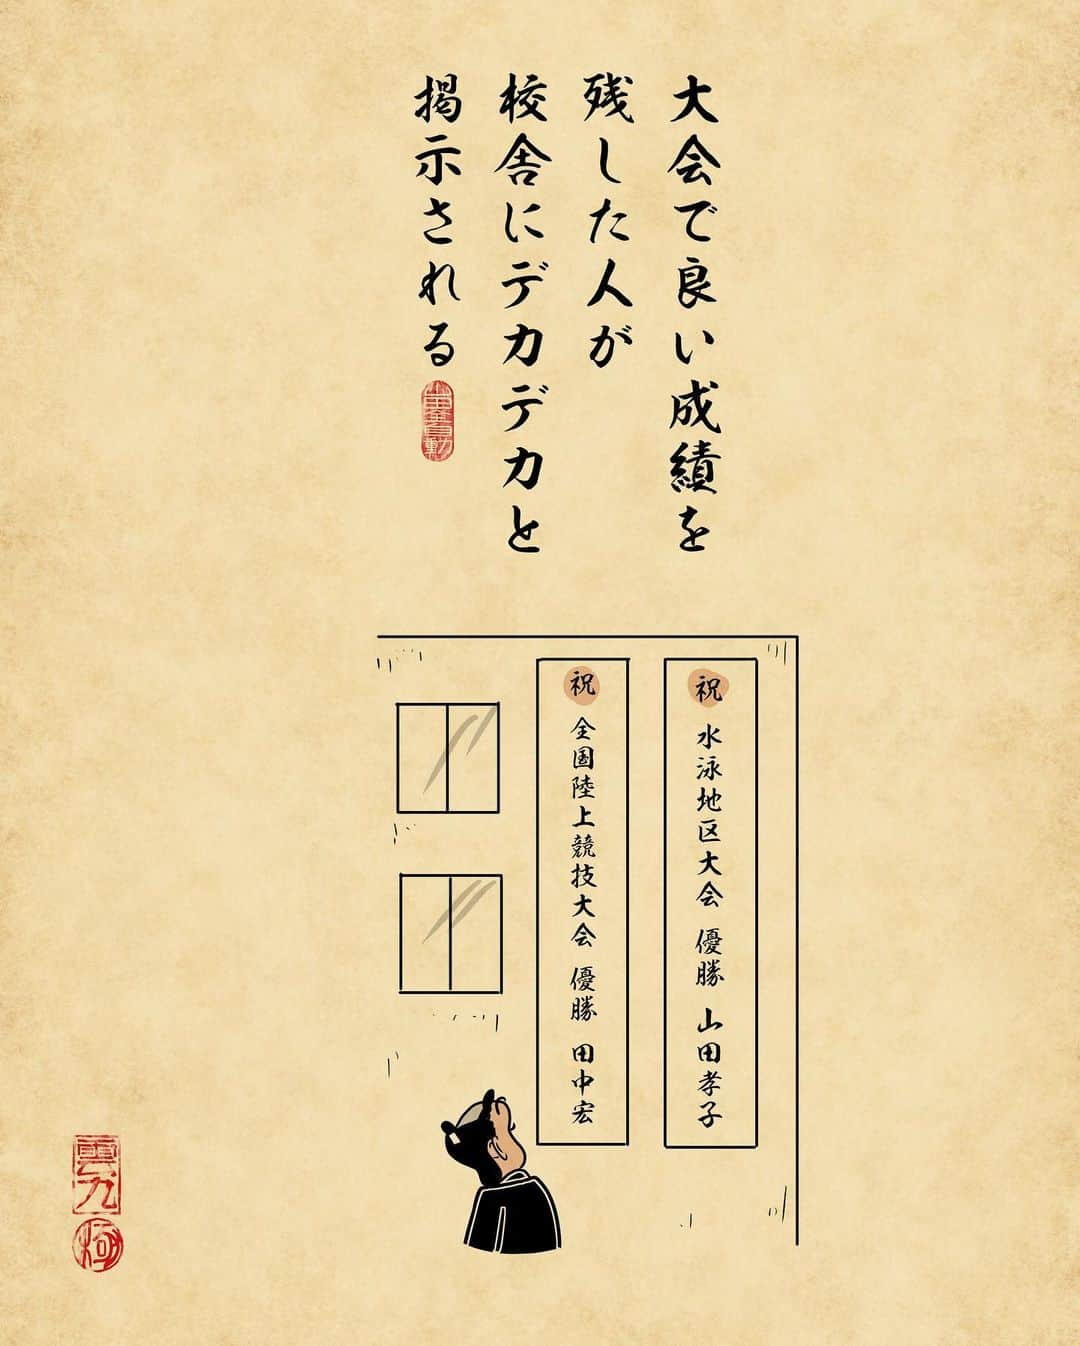 大会で良い成績を
残した人が
校舎にデカデカと
掲示される
祝 水泳地区大会 優勝 山田孝子
祝 全国陸上競技大会 優勝 田中宏
雲九
極